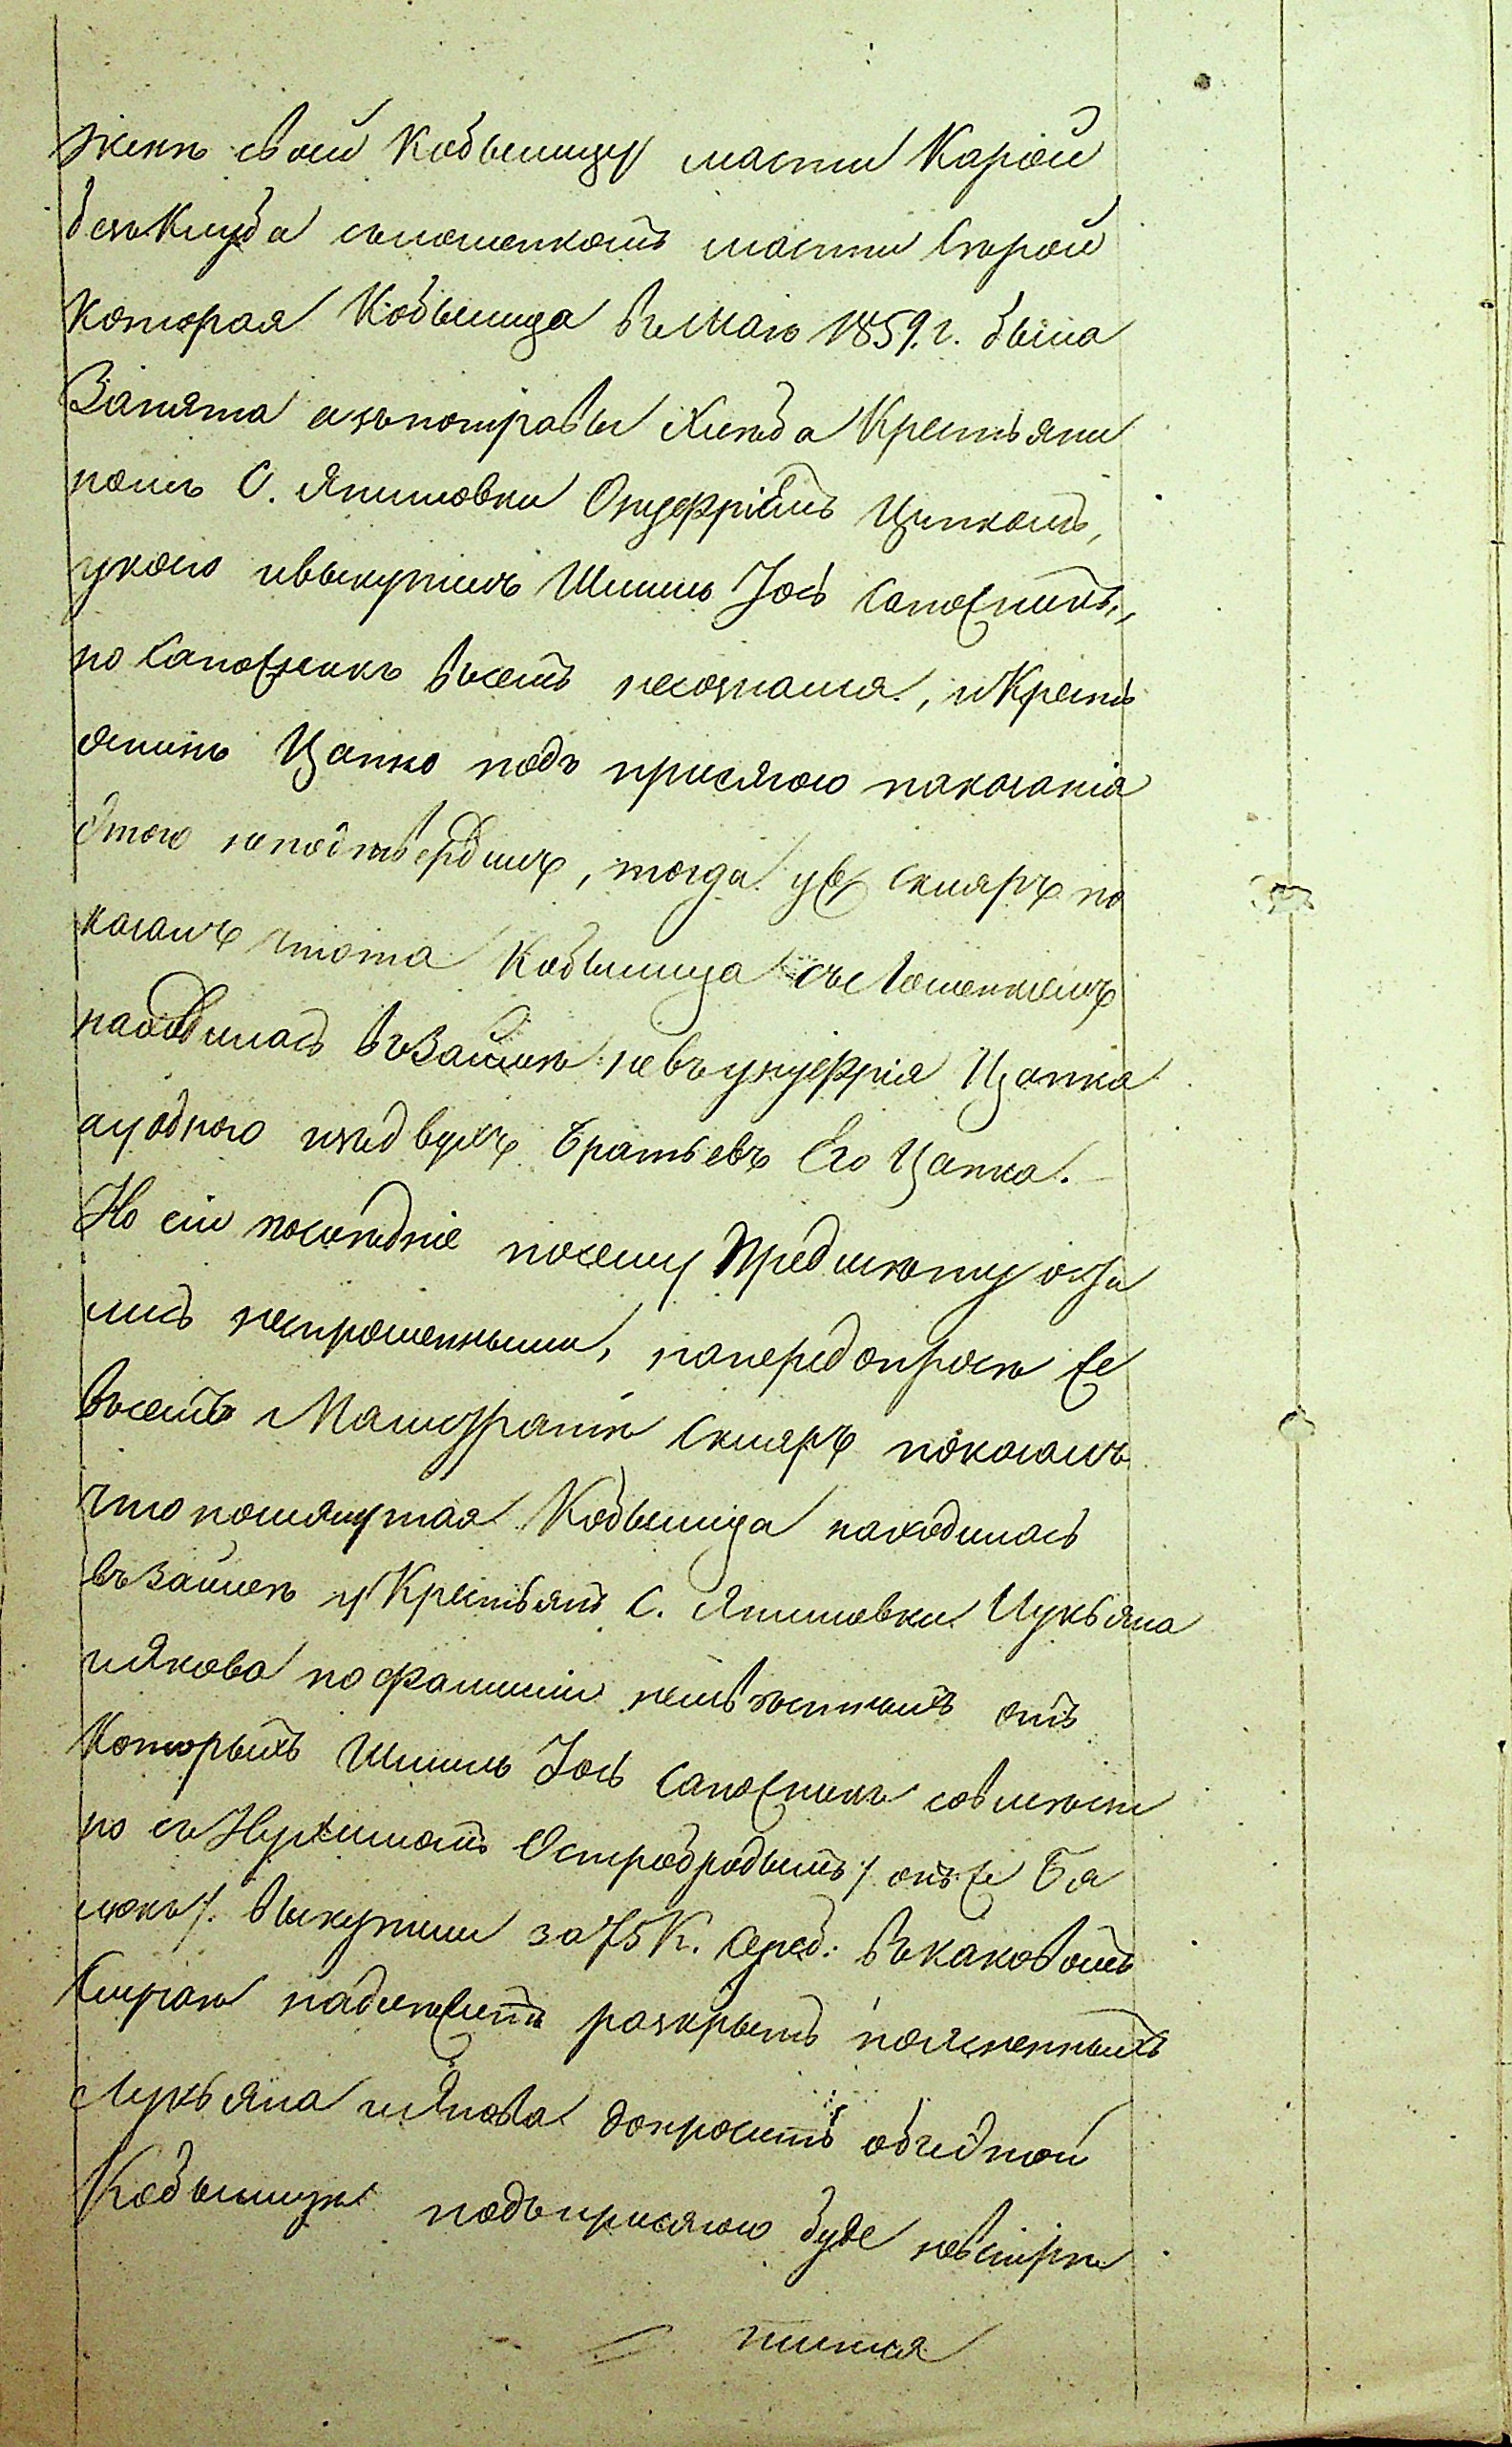 жепъ своей Кобылицу масти Карой
безъ Клуба сълошенкомъ масти Серой
Которая Кобылица въ маѣ 1859. г. была
Занята изъпотравы Хлѣба Крестьяни
номъ С. Япиловки Онуфріемъ Цапкомъ,
укого ивыкупилъ Шлиль Іось Сапожникъ,,
но Сапожникъ въсемъ несознался, и Кресть
янинъ Цапко подъ присягою показанія
этого неподтвердилъ, тогда уже Скляръ по
казалъ чтота Кобылица съ Лошенкомъ
находилась въ Займѣ невъ унуфрія Цапка
ауодного изъдвухъ братьевъ Его Цапка.
Но сіи послѣдніе посему предмѣту оста
лись неспрошенными, напередопросѣ же
въсемъ Магистратѣ Скляръ показалъ
что помянутая Кобылица находилась
въ займѣ у Крестьянъ С. Япиловки Лукьяна
иЯкова по фамиліи неизвѣстныхъ отъ
Которыхъ Шлиль Іось Сапожникъ совмѣст
но съ Нухимомъ Остробродымъ / онъ же Ба
люкъ /. выкупили за 75 К. Сереб: въкаковомъ
Случаѣ надлежитъ розкрыть поясненныхъ
Лукьяна иЯкова допросить объ этой
Кобылицѣ подъприсягою буде невстрѣ
тится